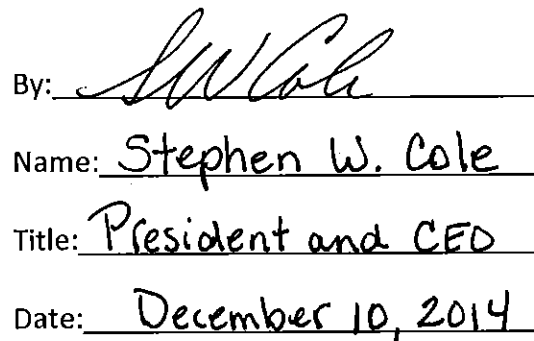 By: SW Cole
Name: Stephen W. Cole
Title: President and CEO
Date: December 10, 2014